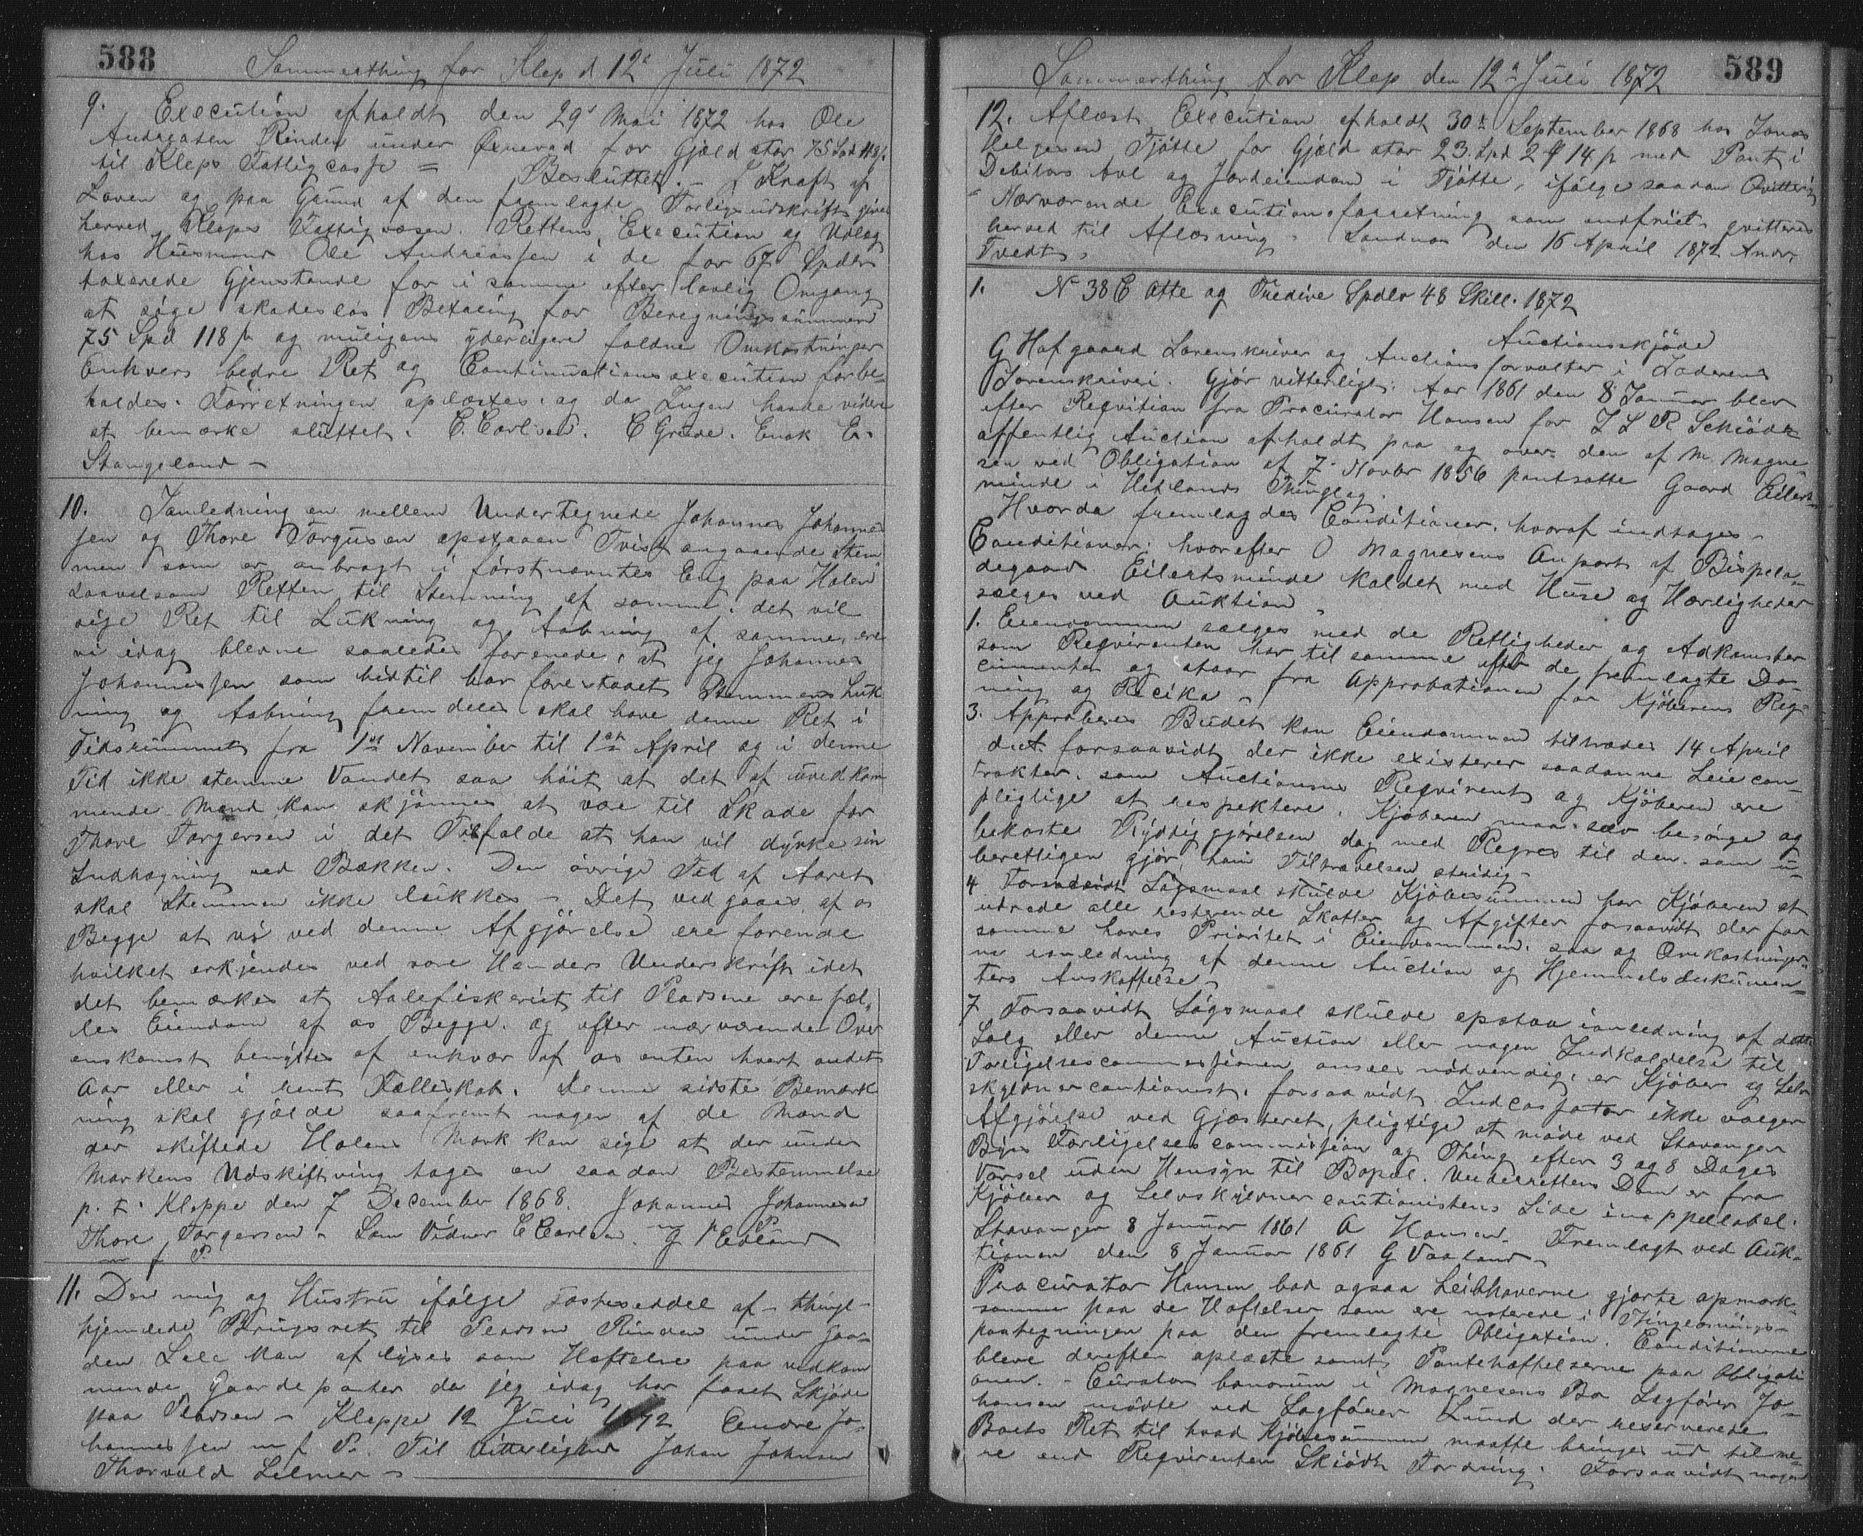 588
Sommerthing for Klep d 12te Juli 1872
9. Execution afholdt den 29d Mai 1872 hos Ole
Andreasen Rinden under Øxnevad for Gjæld stor 75 Spd 118 ß
til Kleps Fattigcasse = Besluttet. - I Kraft af
Loven og paa Grund af den fremlagte Forligsudskrift gives
herved Kleps Fattigvæsen Rettens Execution og Udlæg
hos Huusmand Ole Andreassen i de for 67 Spdlr
taxerede Gjenstande for i samme efter lovlig Omgang
at søge skadesløs Betaling for Beregningssummen
75 Spd 118 ß og muligens yderligere faldne Omkostninger
Enhvers bedre Ret og Continuationsexecution forbe-
holdes. Forretningen oplæstes og da Ingen havde videre
at bemærke sluttet. E. Carlsen. E Grude. Enok E.
Stangeland -
10. I anledning en mellem Undertegnede Johannes Johannes
sen og Thore Torgusen opstaaen Tvist angaaende Stem
men som er anbragt i førstnævntes Eng paa Holen
saavelsom Retten til Stemning af samme, det vil
sige Ret til Lukning og Aabning af samme, ere
vi idag blevne saaledes forenede, at jeg Johannes
Johannessen som hidtil har forestaaet Stemmens Luk
ning og Aabning fremdeles skal have denne Ret i
Tidsrummet fra 1st November til 1st April og i denne
Tid ikke stemme Vandet saa høit at det af uvedkom
mende Mænd kan skjønnes at være til Skade for
Thore Torgersen i det Tilfælde at han vil dyrke sin
Indhegning ved Bækken. Den øvrige Tid af Aaret
skal Stemmen ikke lukkes - Det vedgaaes af os
Begge at vi ved denne Afgjørelse ere forende
hvilket erkjendes ved vore Hænders Underskrift idet
det bemærkes at Aalefiskeriet til Pladsene ere fæl-
les Eiendom af os Begge og efter nærværende Over
enskomst benyttes af enhver af os enten hvert andet
Aar eller i rent Fælleskab. Denne sidste Bemærk
ning skal gjælde saafremt nogen af de Mænd
der skiftede Holens Mark kan sige at der under
Markens Udskiftning toges en saadan Bestemmelse
p. t. Kleppe den 7 December 1868. Johannes Johannesen
Thore Torgersen - Som Vidner E Carlsen. G Edland
m f P.
11. Den mig og Hustru ifølge Fæsteseddel af - thingl-
hjemlede Brugsret til Pladsen Rinden under Jaa-
den Lele kan aflyses som Heftelse paa vedkom
mende Gaardeparter da jeg idag har faaet Skjøde
paa Pladsen - Kleppe 12 Juli 1872 Endre Jo-
hannessen m f P. Til Vitterlighed Johan Johnsen
Thorvald Selmer -
589
Sommerthing for Klep den 12te Juli 1872
12. Aflæst Execution afholdt 30te September 1868 hos Jonas
Helgesen Tjøtte for Gjæld stor 23 Spd 2 14 ß med Pant i
Debitors Avl og Jordeiendom i Tjøtte, ifølge saadan Qvittering
"Nærværende Executionsforretning som indfriet qvitteres
herved til Aflæsning. Sandnes den 16 April 1872 Andr.
Tvedt.
1. N 38 C Otte og Tredive Spdlr 48 Skill. 1872
Auctionsskjøde
G Hofgaard Sorenskriver og Auctionsforvalter i Jæderens
Sorenskriveri. Gjør vitterligt: Aar 1861 den 8 Januar blev
efter Reqvition fra Procurator Hansen for
offentlig Auction afholdt paa og over den af M. Magne-
sen ved Obligation af 7 Novbr 1856 pantsatte Gaard Eilerts-
minde i Hetlands Thinglag.
Hvorda fremlagdes Conditioner, hvoraf indtages -
Conditioner: hvorefter O Magnesens Anpart af Bispela-
degaard Eilertsminde kaldet med Huse og Herligheder
sælges ved Auktion.
1. Eiendommen sælges med de Rettigheder og Adkomster
som Reqvirenten har til samme efter de fremlagte Do-
cumenter og staar fra Approbationen for Kjøberens Reg-
ning og Recika -
3. Approberes Budet kan Eiendommen tiltrædes 14 April
d.A. forsaavidt der ikke existerer saadanne Leiecon-
trakter, som Auctionens Reqvirent og Kjøberen ere
pligtige at respektere. Kjøberen maa selv besørge og
bekoste Ryddiggjørelsen dog med Regres til den som u-
berettigen gjør ham Tiltrædelsen stridig -
4 Forsaavidt Søgsmaal skulde Kjøbesummen har Kjøberen at
udrede alle resterende Skatter og Afgifter forsaavidt der for
samme haves Prioritet i Eiendommen, saa og Omkostninger-
ne i anledning af denne Auction og Hjemmelsdokumen-
ters Anskaffelse -
7 Forsaavidt Søgsmaal skulde opstaa i anledning af dette
Salg eller denne Auction eller nogen Indkaldelse til
Forligelsescommissionen ansees nødvendig, er Kjøber og Selv-
skyldnercautionist, forsaavidt Indcassator ikke vælger
Afgjørelse ved Gjæsteret, pligtige at møde ved Stavanger
Byes Forligelsescommission og Thing efter 3 og 8 Dages
Varsel uden Hensyn til Bopæl. Underrettens Dom er fra
Kjøber og Selvskyldnercautionistens Side inappelabel.
Stavanger 8 Januar 1861 A Hansen. Fremlagt ved Auk-
tionen den 8 Januar 1861 G Vaaland -
Procurator Hansen bad ogsaa Leibhaverne gjorte opmærk-
somme paa de Heftelser som ere noterede i Thinglæsnings-
paategningen paa den fremlagte Obligation. Conditionerne
bleve derefter oplæste samt Pantehæftelserne paa Obligati
onen. - Curator bonorum i Magnesens Bo Sagfører Jo-
hansen mødte ved Sagfører Lund der reserverede
Boets Ret til hvad Kjøbesummen maatte bringes ud til me-
re end Reqvirenten Skiødt Fordring. Forsaavidt nogen